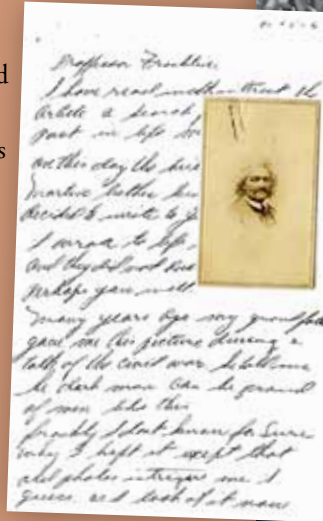 d
s
Professor Franklin:
I have read with interest the
article a search
past in life
on this day the
Martin Luther
decided to write to
I wrote to life
and they did not
perhaps you will.
Many years ago my grandfather
gave me this picture during a
talk of the civil war. he told me
the dark man can be proud
of men like this
frankly I dont know for sure
why I kept it except that
old photos intrigue me I
guess. as I look at it now